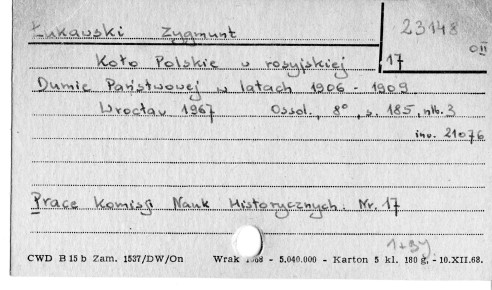 Łukawski Zygmunt 23148
OII
Koło Polskie w rosyjskiej 17
Dumie Państwowej w latach 1906 - 1909
Wrocław 1967 Ossol., 8°, s. 185, nlb. 3
inw. 21076
Prace Komisji Nauk Historycznych. Nr. 17
CWD B 15 b Zam. 1537/DW/On Wrak - 5.040.000 - Karton 5 kl. 180 g. - 10.XII.68.